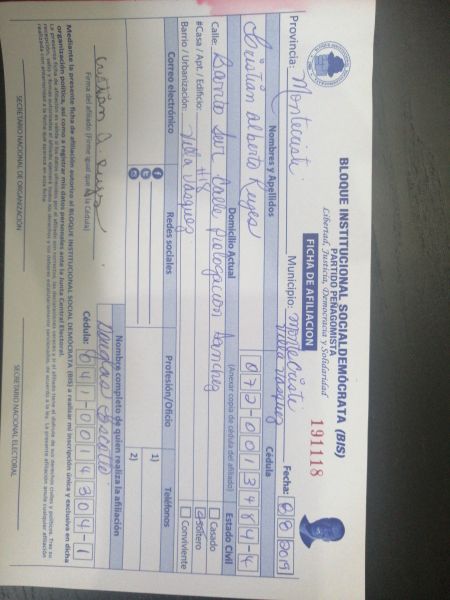 BLOQUE INSTITUCIONAL SOCIALDEMÓCRATA (BIS)
PARTIDO PEÑAGOMISTA
Libertad, Justicia, Democracia y Solidaridad
FICHA DE AFILIACIÓN
191118
Provincia: Montecristi Municipio: Montecristi Villa Vasquez Fecha: 2019
Nombres y Apellidos Cédula
Cristian Alberto Reyes 072-0013484-4
Domicilio Actual (Anexar copia de cédula del afiliado) Estado Civil
Calle: Barrio Sur Calle Prologacion Sanchez Casado
#Casa / Apt. / Edificio: #18 Soltero
Barrio / Urbanización: Villa Vasquez Conviviente
Correo electrónico Redes sociales Profesión/Oficio Teléfonos
1)
2)
Nombre completo de quien realiza la afiliación
Firma del afiliado (Firme igual que la Cédula)
Cédula: 041-0014304-1
Mediante la presente ficha de afiliación autorizo al BLOQUE INSTITUCIONAL SOCIALDEMÓCRATA (BIS) a realizar mi inscripción única y exclusiva en dicha
organización política, así como a registrar mis datos personales ante la Junta Central Electoral.
SECRETARIO NACIONAL DE ORGANIZACIÓN SECRETARIO NACIONAL ELECTORAL